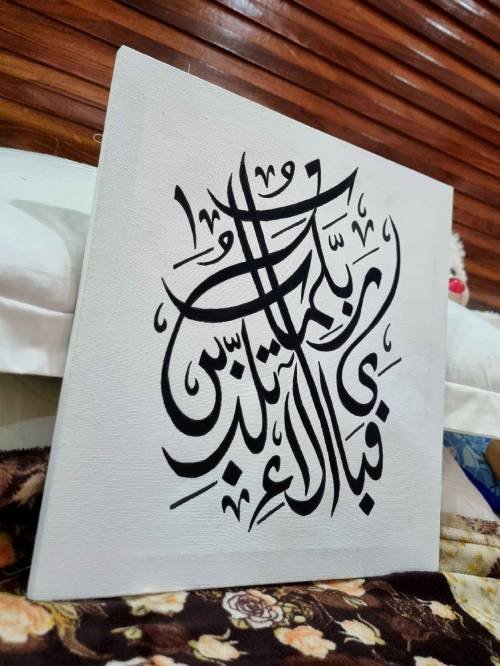 فبأي آلاء ربّكما تكذّبان